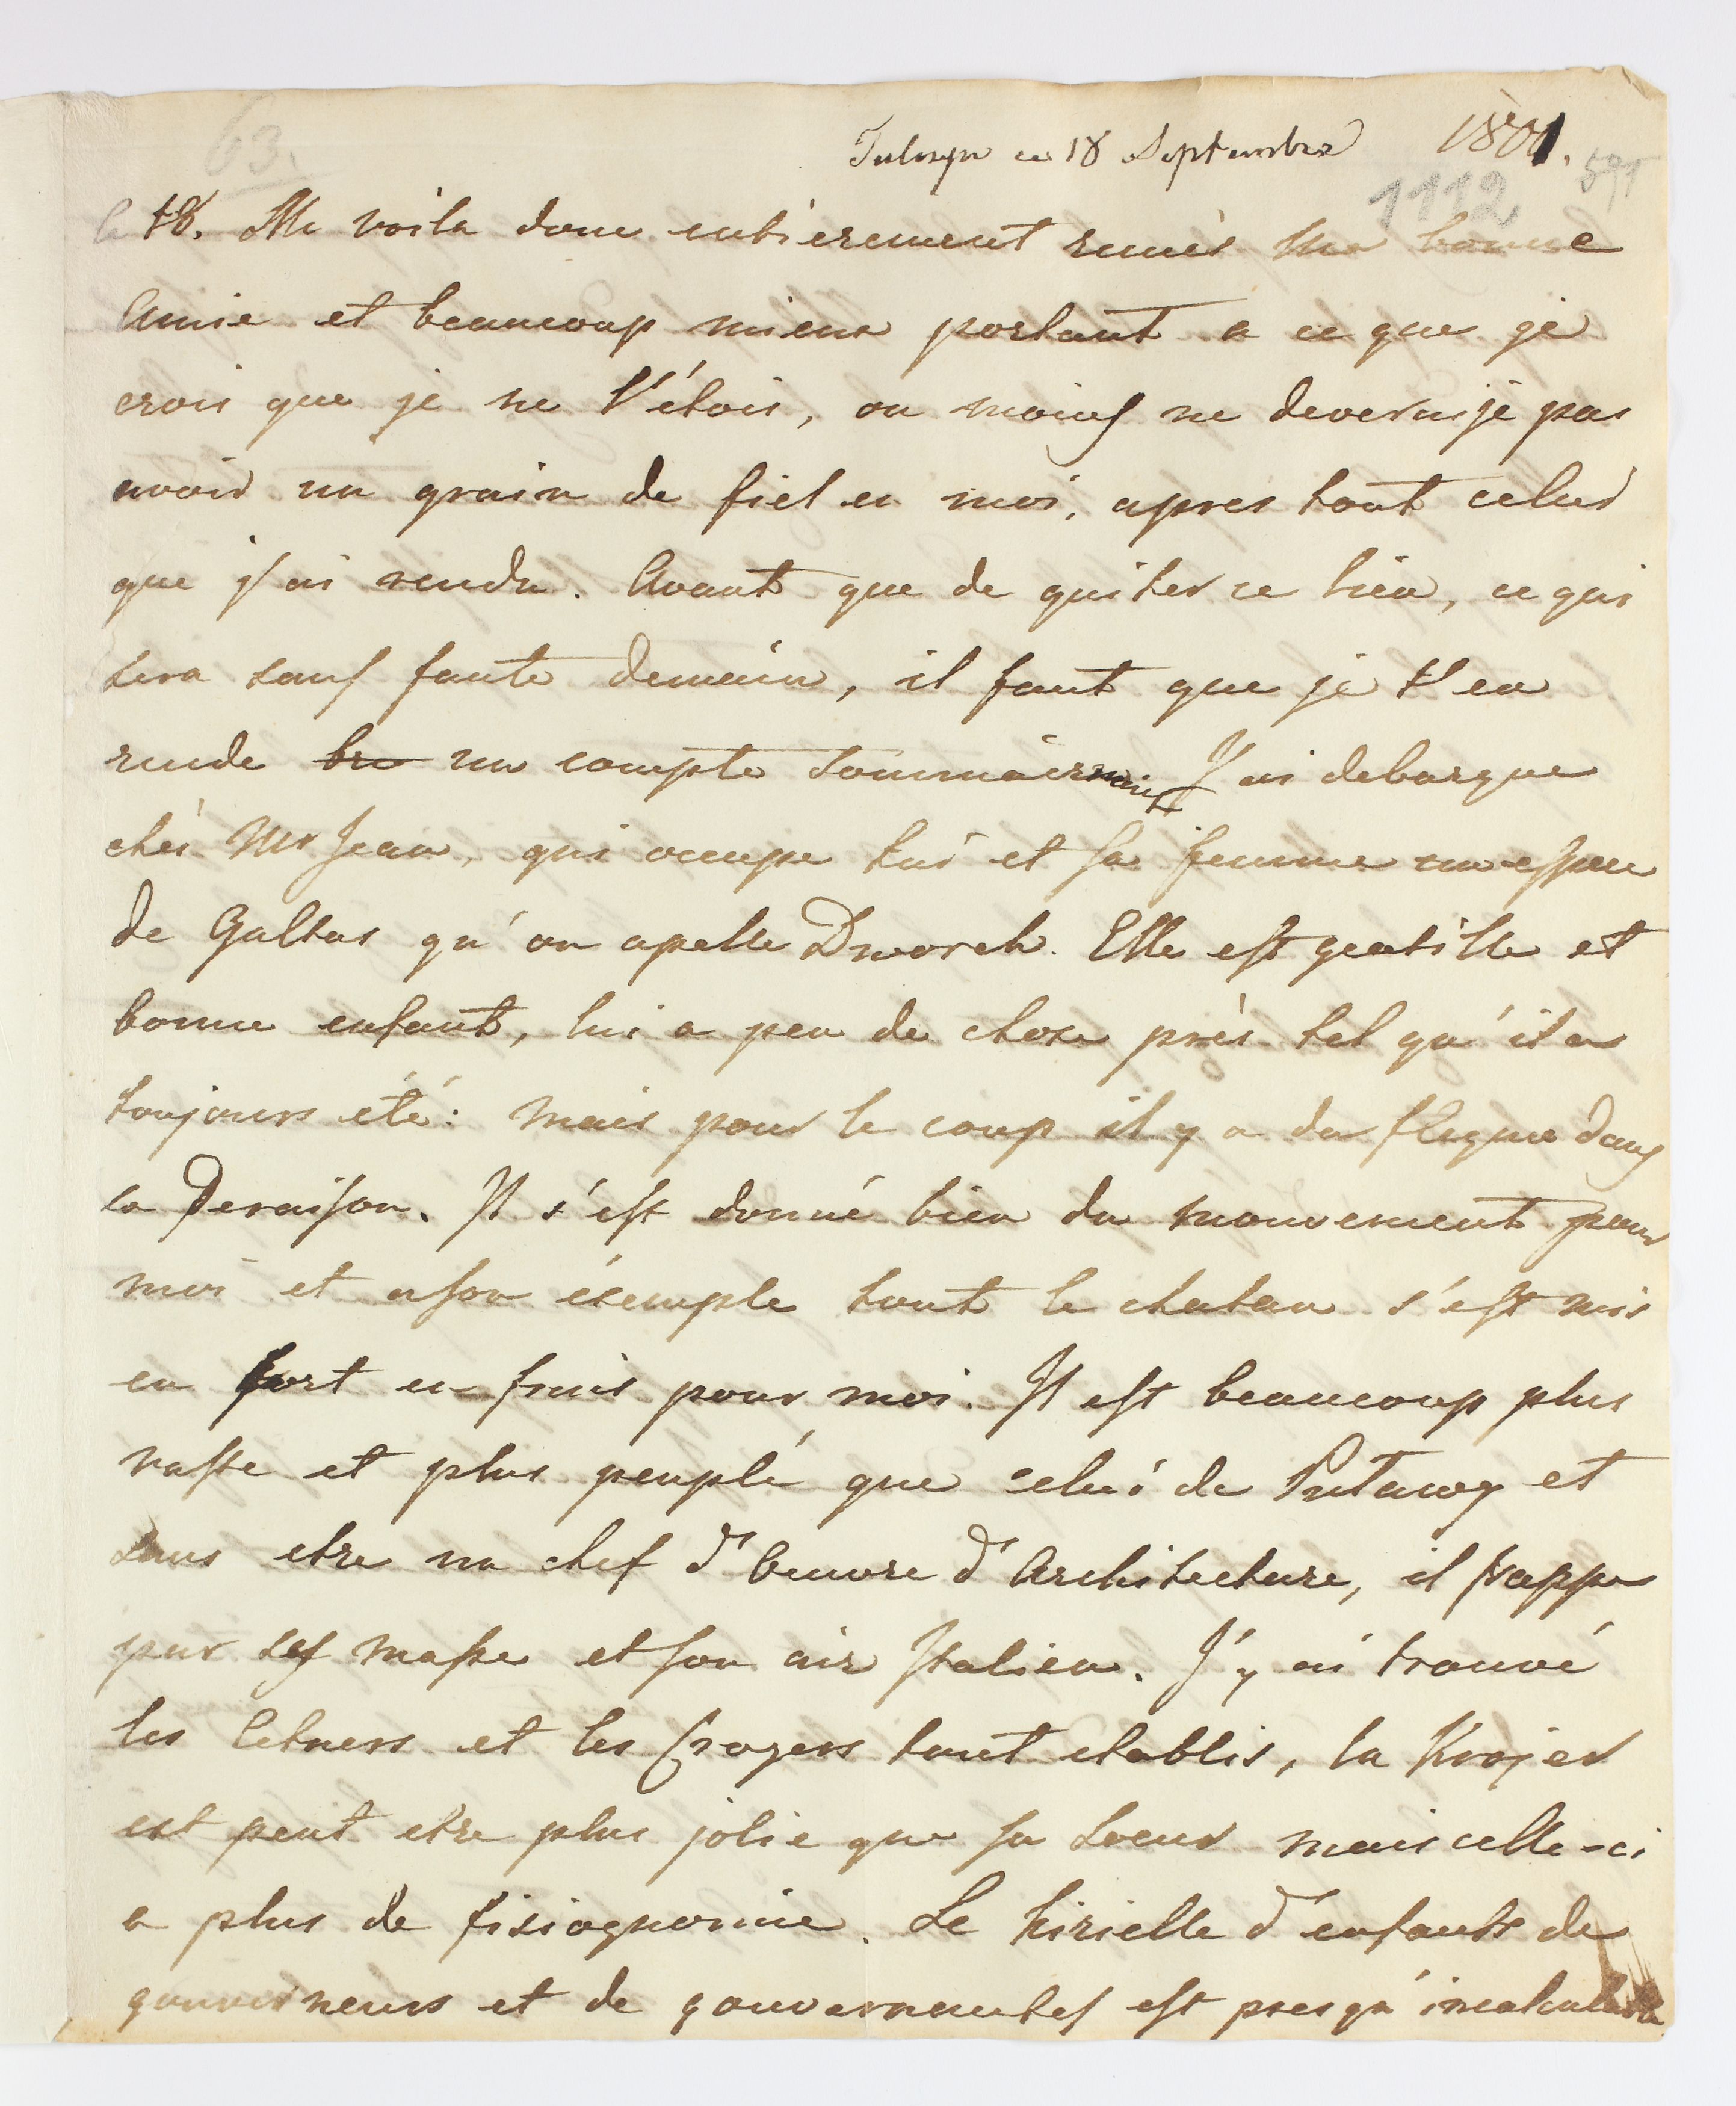 63.
Tulczyn ce 18 Septembre 1801.
1112 591
le 18. Me voila donc entierement remis ma bonne
Amie et beaucoup mieux portant a ce que je
crois que je ne l'étois, ou moins ne deverai je pas
avoir un grain de fiel en moi, apres tout celui
que j'ai rendu. Avant que de quiter ce lieu, ce qui
sera sans faute demain, il faut que je t'en
rende un compte sommaire J'ai debarque
chés Mr Jean, qui occupe lui et sa femme un espece
de Galtas qu'on apelle Dworek. Elle est gentille et
bonne enfant, lui a peu de chose près tel qu'il a
toujours été: mais pour le coup il y a du flegme dans
sa Deraison. Il s'est donné bien du mouvement pour
moi et a son éxemple tout le chatau s'est mis
en fort en frais pour moi. Il est beaucoup plus
vaste et plus peuplé que celui de Putawy et
sans etre un chef d'Oeuvre d'Architecture, il frappe
par sa masse et son air Italien. J'y ai trouvé
les Cetners et les Crayers tout etablis, la Krajer
est peut etre plus jolie que sa soeur mais celle-ci
a plus de fisiognomie. Le kirielle d'enfants de
gouverneurs et de gouvernantes est presqu'incalculable